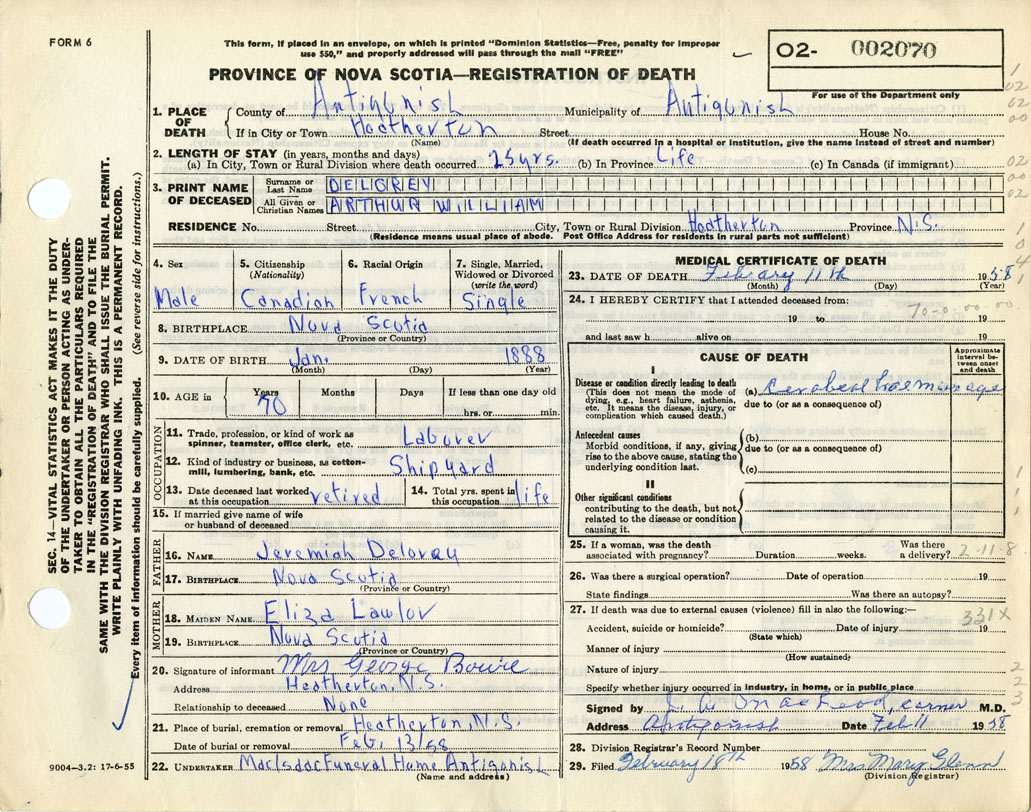 FORM 6
This form, if placed in an envelope, on which is printed "Dominion Statistics—Free, penalty for improper
use $50," and properly addressed will pass through the mail "FREE"
O2- 002070
For use of the Department only
PROVINCE OF NOVA SCOTIA—REGISTRATION OF DEATH
1. PLACE OF DEATH County of Antigonish Municipality of Antigonish
If in City or Town Heatherton Street House No.
(Name) (If death occurred in a hospital or institution, give the name instead of street and number)
2. LENGTH OF STAY (in years, months and days)
(a) In City, Town or Rural Division where death occurred 25 yrs. (b) In Province Life (c) In Canada (if immigrant)
3. PRINT NAME OF DECEASED Surname or Last Name DELOREY
All Given or Christian Names ARTHUR WILLIAM
RESIDENCE No. Street City, Town or Rural Division Heatherton Province N.S.
(Residence means usual place of abode. Post Office Address for residents in rural parts not sufficient)
4. Sex Male
5. Citizenship (Nationality) Canadian
6. Racial Origin French
7. Single, Married, Widowed or Divorced (write the word) Single
8. BIRTHPLACE Nova Scotia
(Province or Country)
9. DATE OF BIRTH Jan. 1888
(Month) (Day) (Year)
10. AGE in Years 70 Months Days If less than one day old
hrs. or min.
OCCUPATION
11. Trade, profession, or kind of work as spinner, teamster, office clerk, etc. Laborer
12. Kind of industry or business, as cotton-mill, lumbering, bank, etc. Shipyard
13. Date deceased last worked at this occupation retired 14. Total yrs. spent in this occupation life
15. If married give name of wife or husband of deceased
FATHER
16. NAME Jeremiah Deloray
17. BIRTHPLACE Nova Scotia
(Province or Country)
MOTHER
18. MAIDEN NAME Eliza Lawlor
19. BIRTHPLACE Nova Scotia
(Province or Country)
20. Signature of informant Mrs George Bowie
Address Heatherton, N.S.
Relationship to deceased None
21. Place of burial, cremation or removal Heatherton N.S.
Date of burial or removal Feb. 13/58
22. UNDERTAKER MacIsaac Funeral Home Antigonish
(Name and address)
MEDICAL CERTIFICATE OF DEATH
23. DATE OF DEATH February 11th 1958
(Month) (Day) (Year)
24. I HEREBY CERTIFY that I attended deceased from:
19 to 19
70-0.00.00
and last saw h alive on 19
CAUSE OF DEATH
Approximate interval between onset and death
I
Disease or condition directly leading to death
(This does not mean the mode of dying, e.g., heart failure, asthenia, etc. It means the disease, injury, or complication which caused death.)
(a) Cerebral haemorrage
due to (or as a consequence of)
Antecedent causes
Morbid conditions, if any, giving rise to the above cause, stating the underlying condition last.
(b)
due to (or as a consequence of)
(c)
II
Other significant conditions
contributing to the death, but not related to the disease or condition causing it.
25. If a woman, was the death associated with pregnancy? Duration weeks. Was there a delivery? 2-11-8
26. Was there a surgical operation? Date of operation 19
State findings Was there an autopsy?
27. If death was due to external causes (violence) fill in also the following:—
331X
Accident, suicide or homicide? Date of injury 19
(State which)
Manner of injury
(How sustained)
Nature of injury
Specify whether injury occurred in industry, in home, or in public place
Signed by J. A. MacLeod, corner M.D.
Address Antigonish Date Feb 11 1958
28. Division Registrar's Record Number
29. Filed February 18th 1958 Mrs Mary Glenn
(Division Registrar)
SEC. 14—VITAL STATISTICS ACT MAKES IT THE DUTY
OF THE UNDERTAKER OR PERSON ACTING AS UNDER-
TAKER TO OBTAIN ALL THE PARTICULARS REQUIRED
IN THE "REGISTRATION OF DEATH" AND TO FILE THE
SAME WITH THE DIVISION REGISTRAR WHO SHALL ISSUE THE BURIAL PERMIT.
WRITE PLAINLY WITH UNFADING INK. THIS IS A PERMANENT RECORD.
Every item of information should be carefully supplied. (See reverse side for instructions.)
9004—3.2: 17-6-55